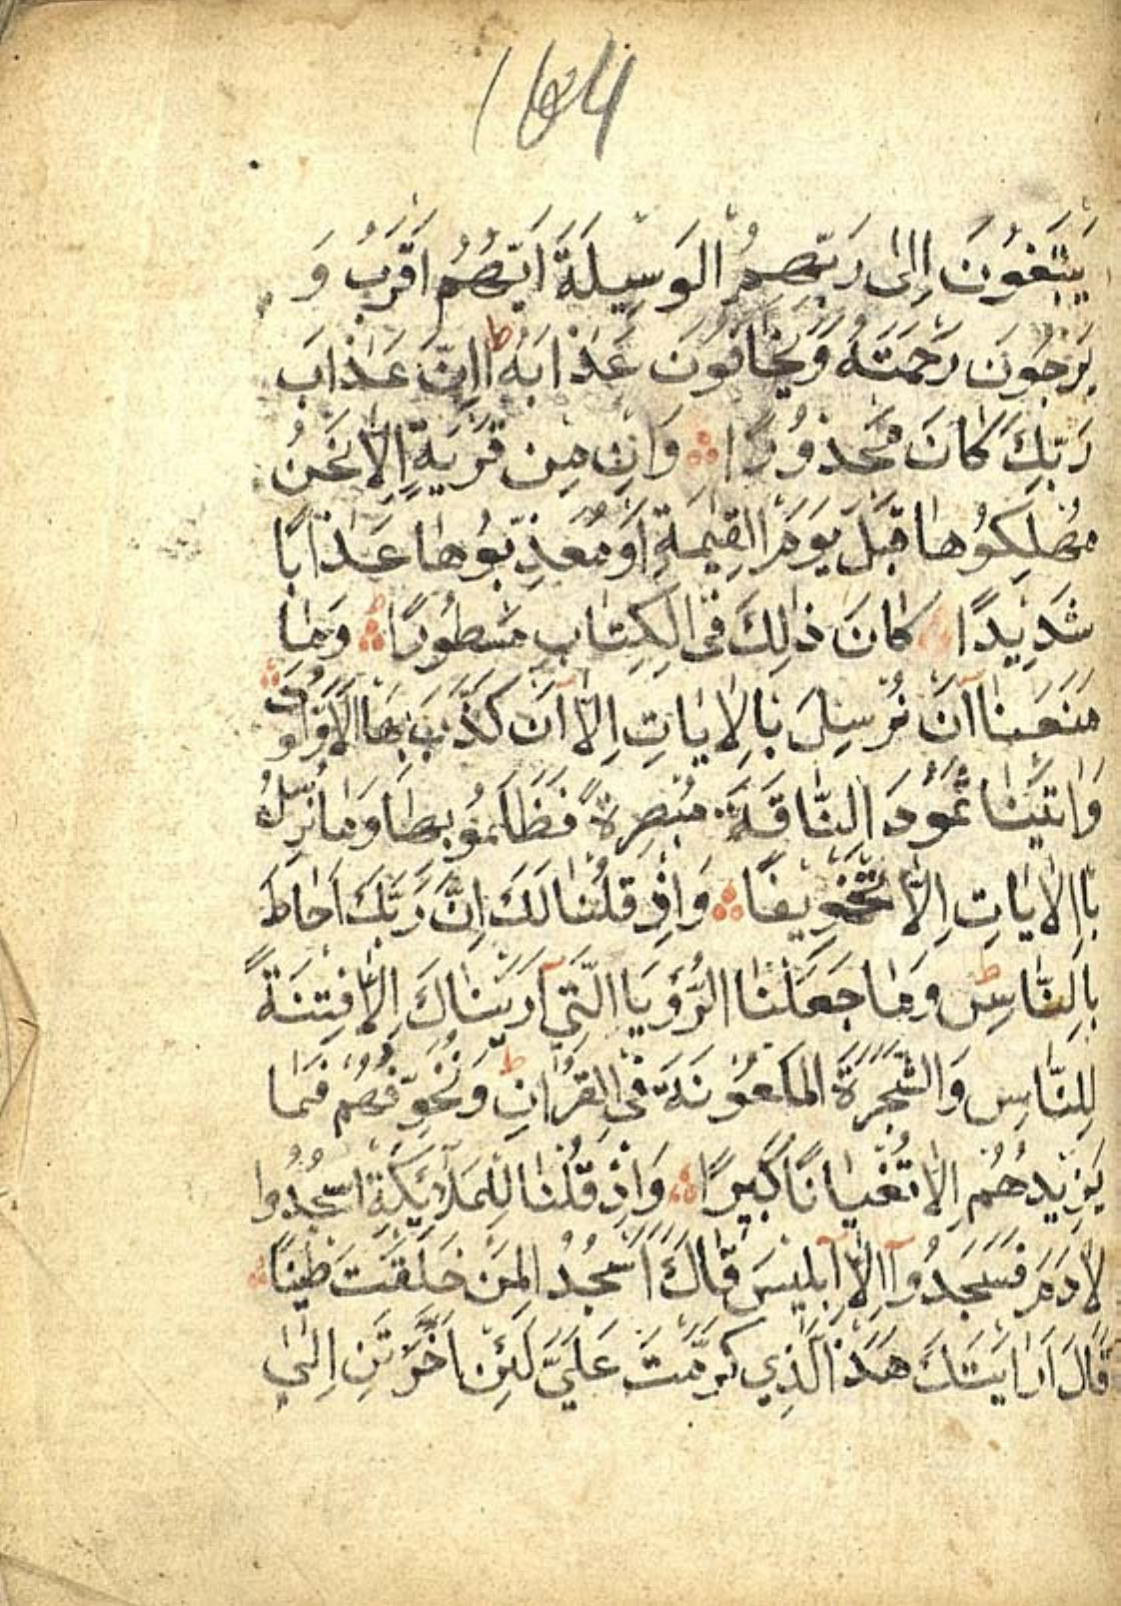 164
يَبْتَغُونَ اِلىٰ رَبِّهِمُ الْوَسِيلَةَ اَيُّهُمْ اَقْرَبُ وَ
يَرْجُونَ رَحْمَتَهُ وَيَخَافُونَ عَذَابَهُ ط اِنَّ عَذَابَ
رَبِّكَ كَانَ مَحْذُورًا ۞ وَاِنْ مِنْ قَرْيَةٍ اِلَّا نَحْنُ
مُهْلِكُوهَا قَبْلَ يَوْمَ الْقِيٰمَةِ اَوْ مُعَذِّبُوهَا عَذَابًا
شَدِيدًا كَانَ ذٰلِكَ فِى الْكِتَابِ مَسْطُورًا ۞ وَمَا
مَنَعَنَا اَنْ نُرْسِلَ بِالْاِيَاتِ اِلَّا اَنْ كَذَّبَ بِهَا الْاَوَّلُونَ ۞
وَاتَيْنَا ثَمُودَ النَّاقَةَ مُبْصِرَةً فَظَلَمُو بِهَا وَمَا نُرْسِلُ
بِاالْاٰيَاتِ اِلَّا تَخْوِيفًا ۞ وَاِذْ قُلْنَا لَكَ اِنَّ رَبَّكَ اَحَاطَ
بِالنَّاسِ ط وَمَا جَعَلْنَا الرُّؤْيَا الَّتِي اَرَيْنَاكَ اِلَّا فِتْنَةً
لِلنَّاسِ وَالشَّجَرَةَ الْمَلْعُونَةَ فِى الْقُرْاٰنِ ط وَنُخَوِّفُهُمْ فَمَا
يَزِيدُهُمْ اِلَّا تُغْيَانًا كَبِيرًا ۞ وَاِذْ قُلْنَا لِلْمَلَائِكَةِ اسْجُدُوا
لِاٰدَمَ فَسَجَدُوا اِلَّا اِبْلِيسَ قَالَ ءَاَسْجُدُ لِمَنْ خَلَقْتَ طِينًا ۞
قَالَ اَرَايْتَكَ هَذَا الَّذِي كَرَّمْتَ عَلَيَّ لَئِنْ اَخَّرْتَنِ اِلىٰ